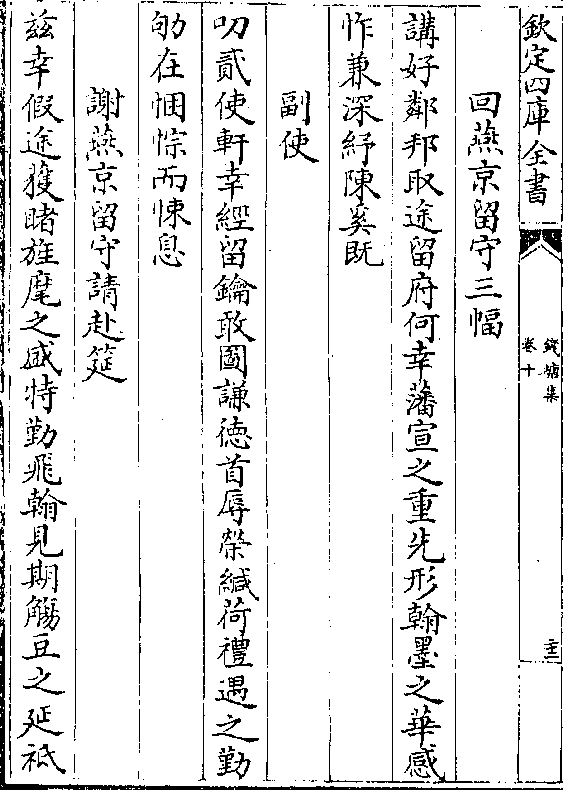 欽定四庫全書
錢塘集
卷十
主
回燕京留守三幅
講好鄰邦取途留府何幸藩宣之重先形翰墨之華感
怍兼深紓陳奚既
副使
叨貳使軒幸經留鑰敢圖謙德首辱榮緘荷禮遇之勤
劬在悃悰而悚息
謝燕京留守請赴筵
兹幸假途獲睹旌麾之盛特勤飛翰見期觴豆之延祗